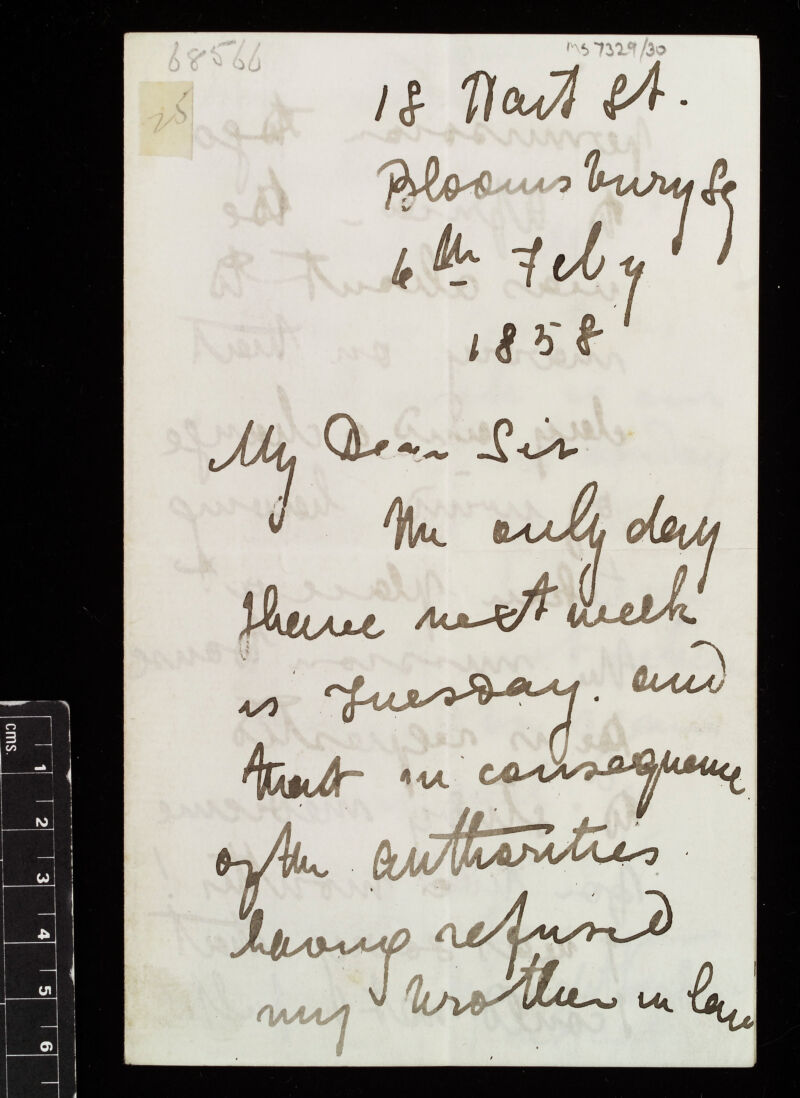 68566
MS 7329/30
25
18 Hart St.
Bloomsbury Sq
6th Feby
1858
My Dear Sir
the only day
I have next week
is Tuesday. and
that in consequence
of the authorities
having refused
my brother in law